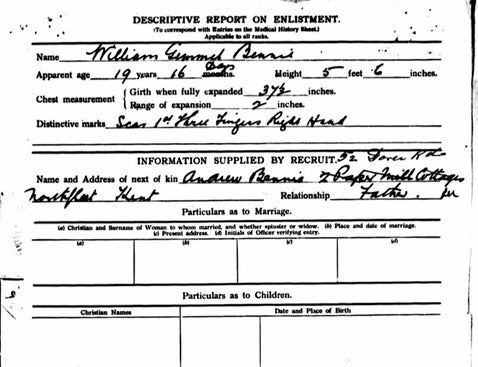 DESCRIPTIVE REPORT ON ENLISTMENT.
(To correspond with Entries on the Medical History Sheet.)
Applicable to all ranks.
Name William Gemmel Bennie
Apparent age 19 years 16 Days months. Height 5 feet 6 inches.
Chest measurement { Girth when fully expanded 37½ inches.
Range of expansion 2 inches.
Distinctive marks Scar 1st Three Fingers Right Hand
INFORMATION SUPPLIED BY RECRUIT. 52 Dover Rd
Name and Address of next of kin Andrew Bennie 2 Paper Mill Cottages
Northfleet Kent Relationship Father.
Particulars as to Marriage.
(a) Christian and Surname of Woman to whom married, and whether spinster or widow. (b) Place and date of marriage.
(c) Present address. (d) Initials of Officer verifying entry.
(a) (b) (c) (d)
Particulars as to Children.
Christian Names Date and Place of Birth